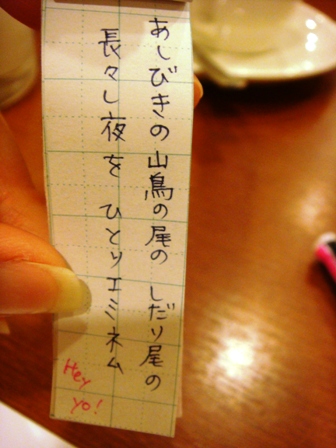 あしびきの山鳥の尾の しだり尾の
長々し夜を ひとりエミネム
Hey
yo!